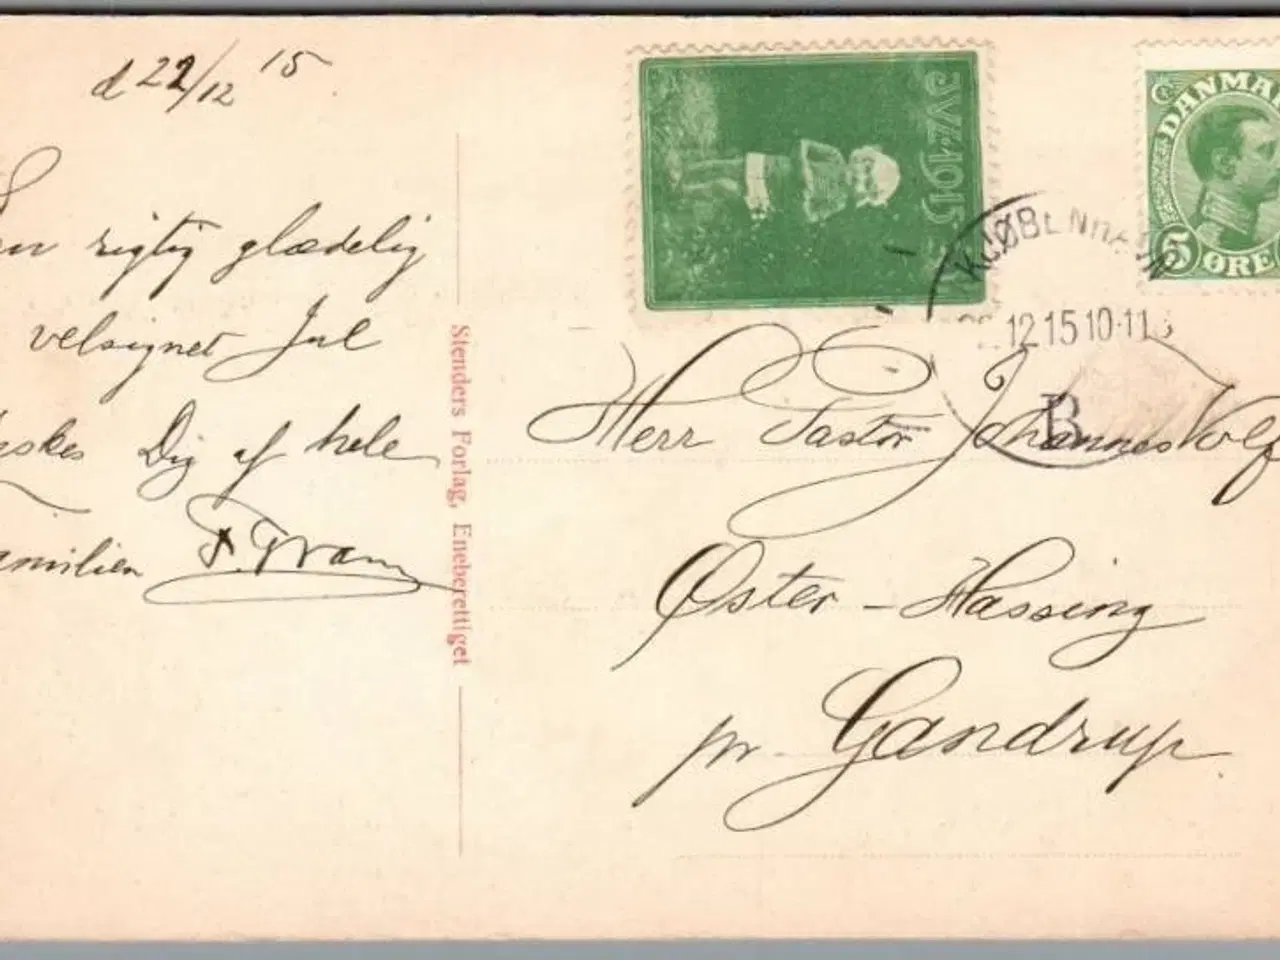 d 22/12 15
En rigtig glædelig
velsignet Jul
ønskes Dig af hele
Familien F. Fram
Stenders Forlag, Eneberettiget
JUL 1915
DANMA
5 ØRE
KJØBENHAVN
12.15 10-11
B
Herr Pastor Johannes
Øster-Hassing
pr. Gandrup.